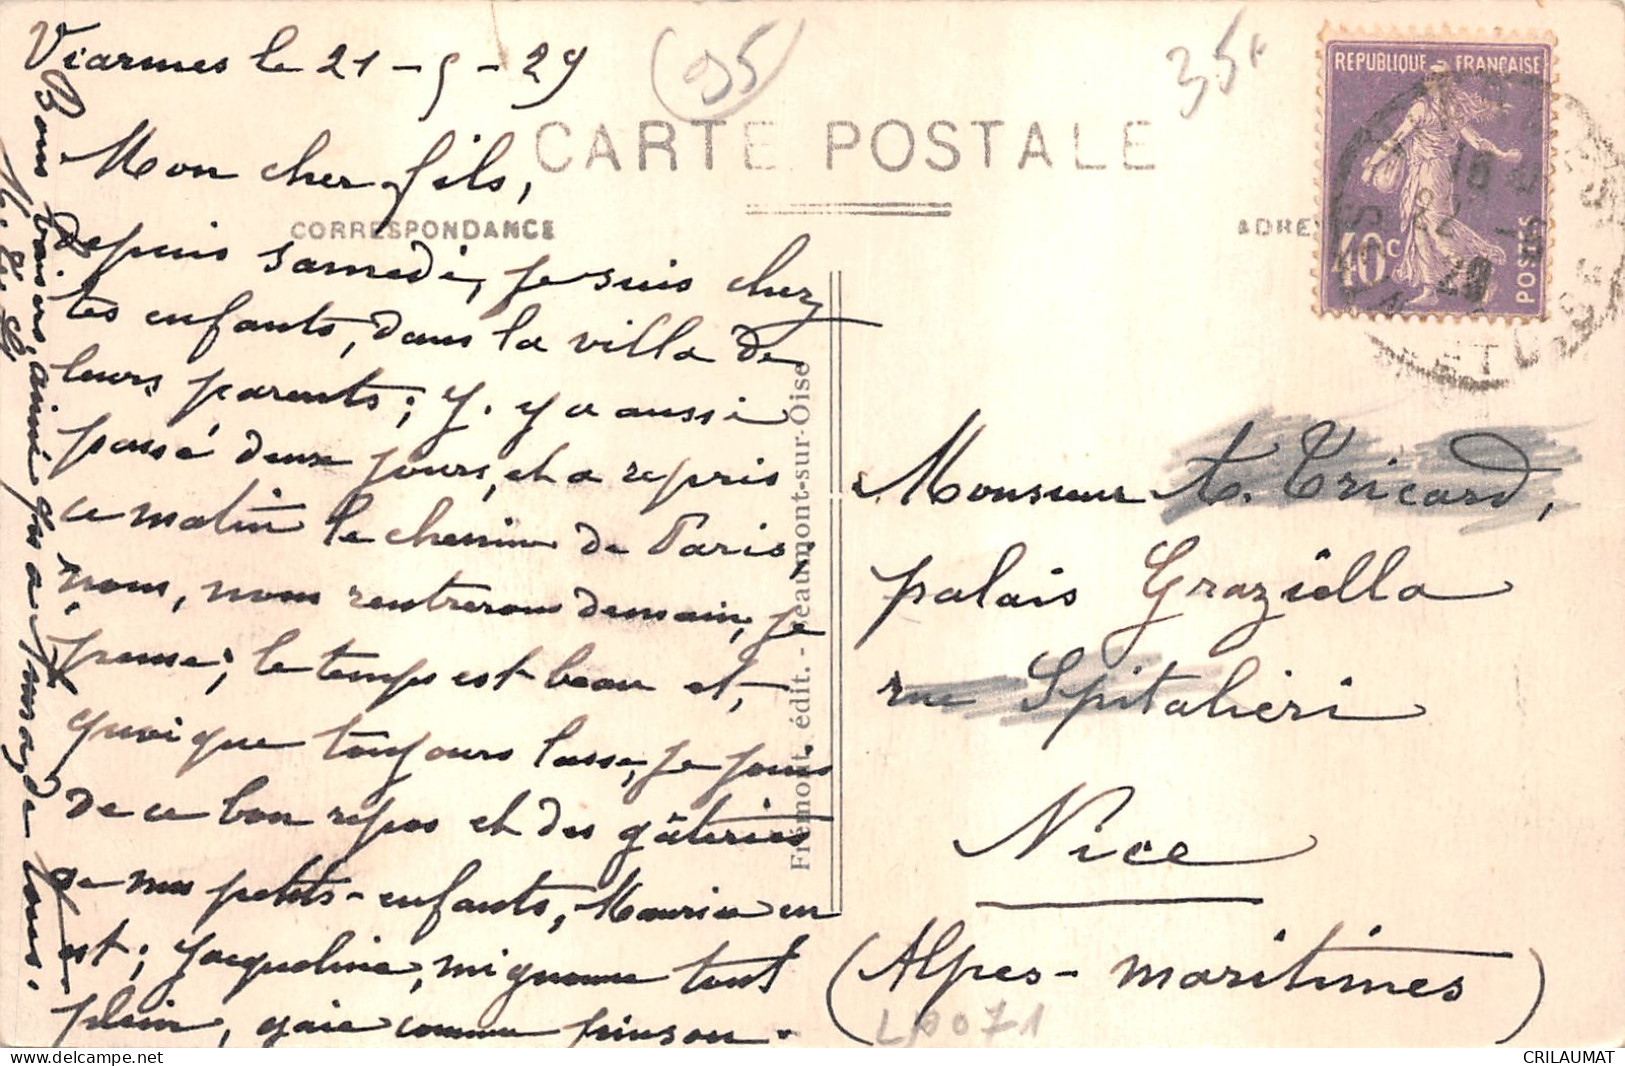 Viarmes le 21-5-29
(95)
35F
CARTE POSTALE
CORRESPONDANCE
ADRE
REPUBLIQUE FRANÇAISE
40c
POSTES
16
22-5
29
Mon cher fils,
depuis samedi, je suis chez
tes enfants, dans la villa de
leurs parents; y. y a aussi
passé deux jours, et a repris
ce matin le chemin de Paris.
nous, nous rentrerons demain, je
pense; le temps est beau et,
quoique toujours lasse, je jouis
de ce bon repos et des gâteries
de nos petits-enfants, Maurice en
est; Jacqueline, mignonne tout
plein, gaie comme pinson.
Bons baisers, aimé gros
Frémont, édit. - Beaumont-sur-Oise
Monsieur A. Tricard,
palais Graziella
rue Spitalieri
Nice
(Alpes-maritimes)
L0071
CRILAUMAT